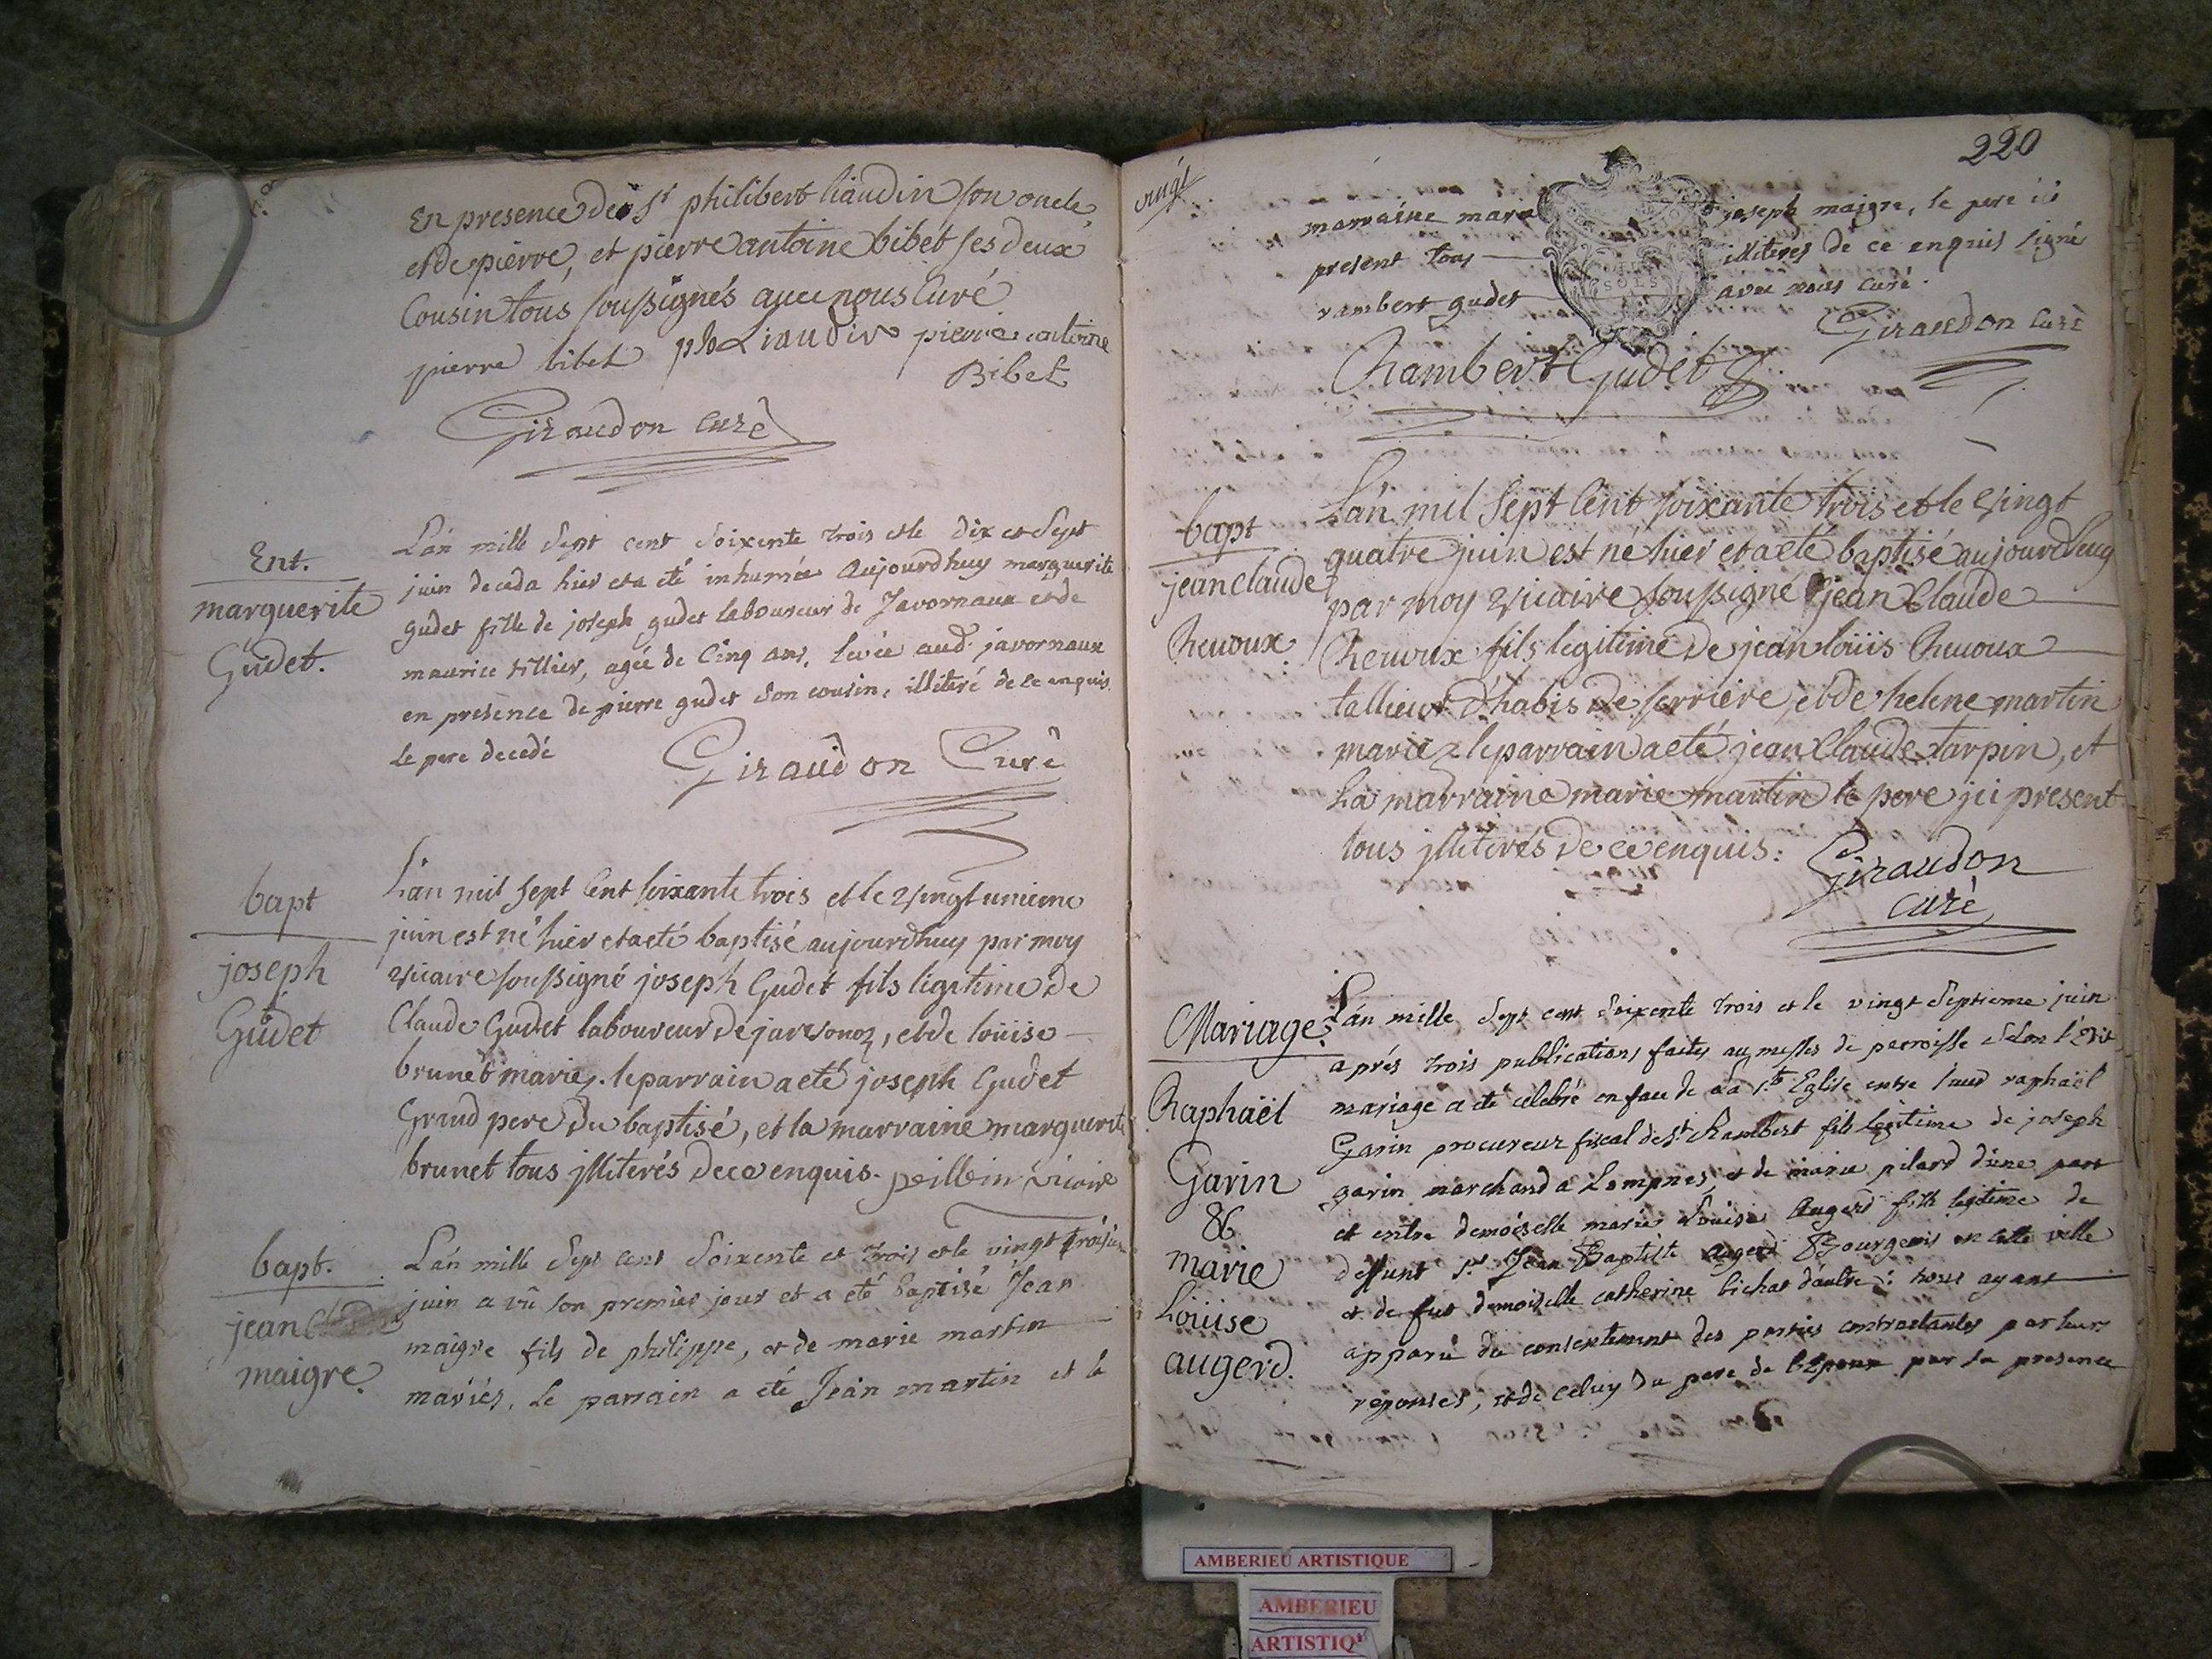 En presence de Sr philibert liaudin son oncle,
et de pierre, et pierre antoine bibet ses deux
Cousin tous soussignés avec nous Curé
pierre bibet ph Liaudin pierre antoine
Bibet
Giraudon curé
Ent.
marguerite
Gudet.
L'an mille sept cent soixente trois et le dix et sept
juin deceda hier et a été inhumée aujourdhuy marguerite
gudet fille de joseph gudet laboureur de Javornaux et de
maurice tillier, agée de Cinq ans, levée aud. javornaux
en presence de pierre gudet son cousin, illiteré de ce enquis
le pere decedé
Giraudon Curé
bapt
joseph
Gudet
L'an mil sept Cent soixante trois et le vingt unieme
juin est né hier et a eté baptisé aujourdhuy par moy
vicaire soussigné joseph Gudet fils legitime de
Claude Gudet laboureur de javornoz, et de loüise
brunet mariez. le parrain a eté joseph Gudet
Grand pere du baptisé, et la marraine marguerite
brunet tous jlliterés de ce enquis. peillein vicaire
bapt.
jean
maigre.
L'an mille sept cent soixente et trois et le vingt trois
juin a vû son premier jour et a eté baptisé Jean
maigre fils de philippe, et de marie martin
mariés. le parrain a eté Jean martin et la
220
vingt
marraine marie joseph maigre, le pere ici
present tous illiterés de ce enquis signé
rambert gudet avec nous curé.
Giraudon curé
Rambert Gudet
bapt
jean claude
Revoux
L'an mil sept Cent soixante trois et le vingt
quatre juin est né hier et a eté baptisé aujourdhuy
par moy vicaire soussigné jean Claude
Revoux fils legitime de jean loüis Revoux
tallieur d'habis de serriere, et de helene martin
mariez le parrain a eté jean Claude tarpin, et
la marraine marie martin le pere jci present
tous jlliterés de ce enquis:
Giraudon
curé
Mariage
Raphaël
Garin
&
marie
Loüise
augerd.
L'an mille sept cent soixente trois et le vingt septieme juin
aprés trois publications faites au messes de paroisse selon l'Edit
mariage a eté celebré en face de la Ste Eglise entre sieur raphaël
Garin procureur fiscal de St Rambert fils legitime de joseph
garin marchand a Lompnes, et de marie pilard d'une part
et entre demoiselle marie Loüise Augerd fille legitime de
deffunt Sr Jean Baptiste augerd Bourgeois en cette ville
et de fut demoiselle catherine bichat d'aultre: nous ayant
apparû du consentement des parties contractantes par leurs
reponses, et de celuy du pere de l'Epoux par sa presence
AMBERIEU ARTISTIQUE
AMBERIEU
ARTISTIQ